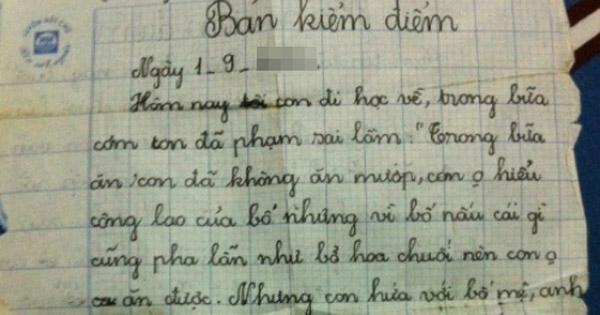 Bản kiểm điểm
Ngày 1-9-
Hôm nay tôi con đi học về, trong bữa
cơm con đã phạm sai lầm: "Trong bữa
ăn, con đã không ăn mướp, con o hiểu
công lao của bố nhưng vì bố nấu cái gì
cũng pha lẫn như bỏ hoa chuối nên con o
ăn được. Nhưng con hứa với bố mẹ, anh